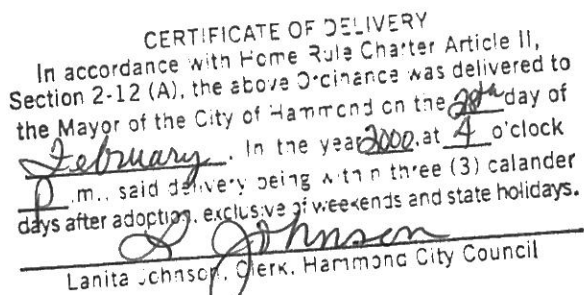 CERTIFICATE OF DELIVERY
In accordance with Home Rule Charter Article II,
Section 2-12 (A), the above Ordinance was delivered to
the Mayor of the City of Hammond on the 28th day of
February. In the year 2000, at 4 o'clock
p.m., said delivery being within three (3) calander
days after adoption, exclusive of weekends and state holidays.
L Johnson
Lanita Johnson, Clerk, Hammond City Council